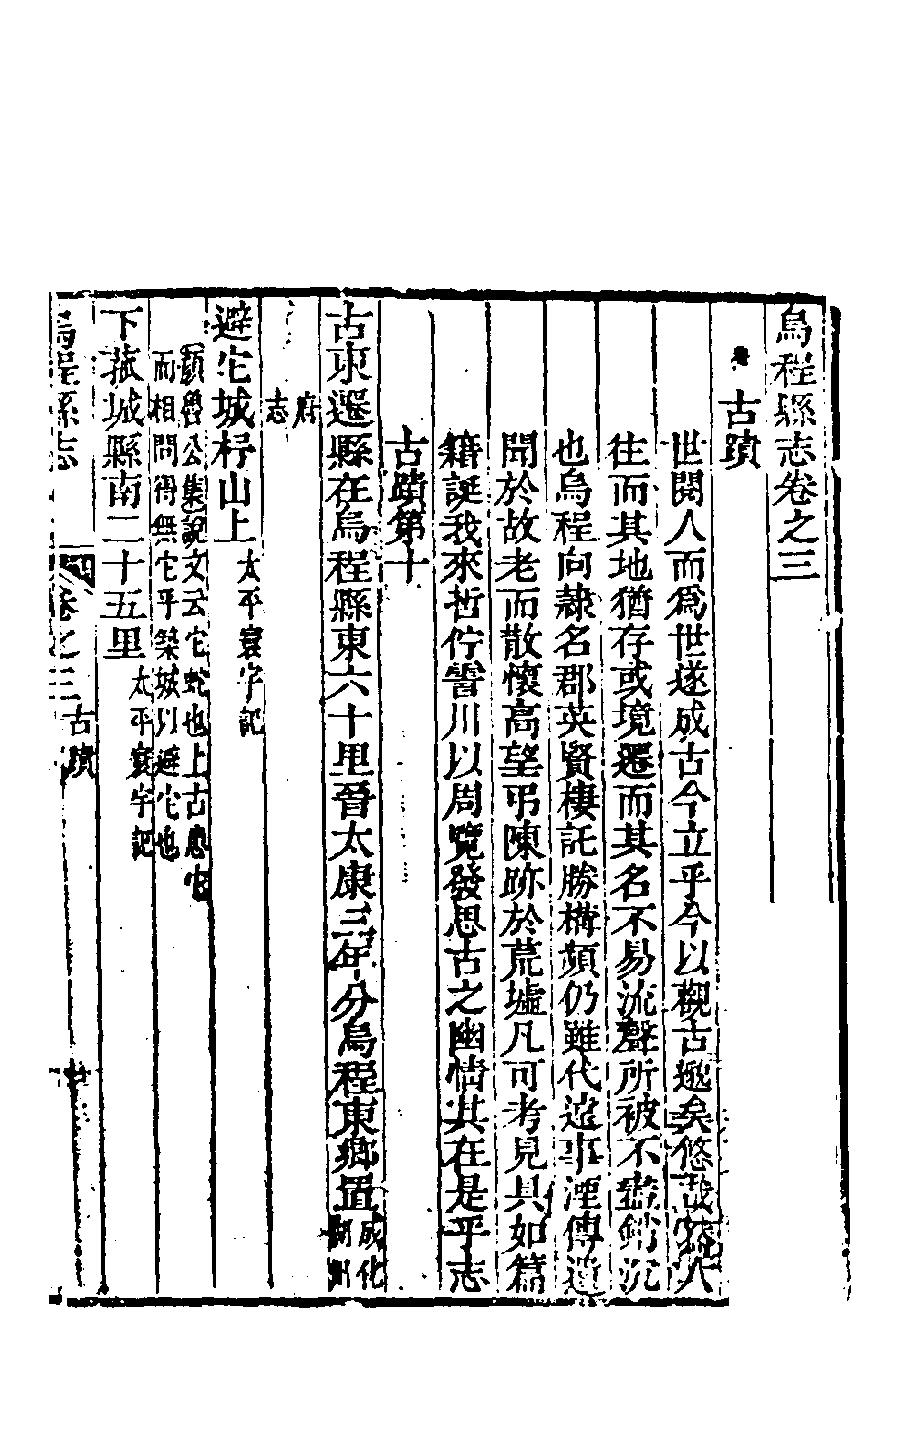 烏程縣志卷之三
古蹟
世閱人而爲世遂成古今立乎今以觀古邈矣悠哉人
往而其地猶存或境遷而其名不易流聲所被不盡銷沉
也烏程向隸名郡英賢棲託勝構頻仍雖代遠事湮傳遺
聞於故老而散懷高望弔陳跡於荒墟凡可考見具如篇
籍誕我來哲佇霅川以周覽發思古之幽情其在是乎志
古蹟第十
古東遷縣在烏程縣東六十里晉太康三年分烏程東鄉置成化湖州
府志
避它城杼山上太平寰宇記
顏魯公集說文云它蛇也上古患它
而相問得無它乎築城以避它也
下菰城縣南二十五里太平寰宇記
烏程縣志 卷之三 古蹟